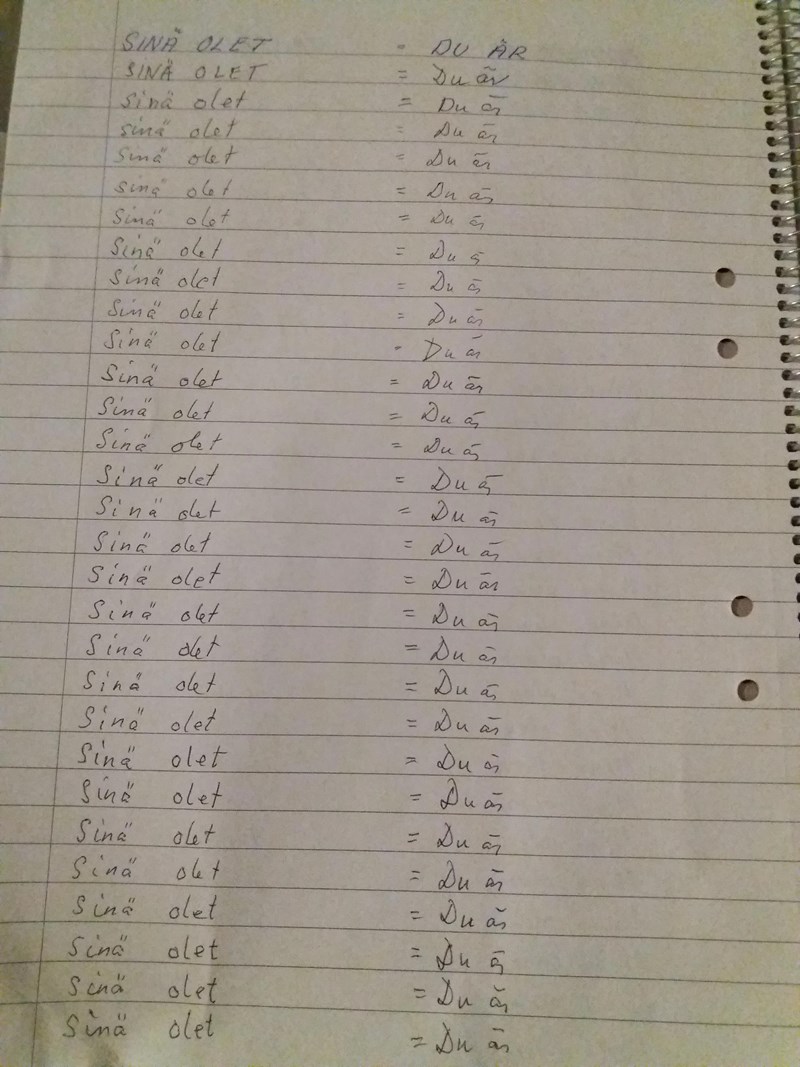 SINÄ OLET - DU ÄR
SINÄ OLET = Du är
Sinä olet = Du är
sinä olet = Du är
Sinä olet = Du är
sinä olet = Du är
Sinä olet = Du är
Sinä olet = Du är
Sinä olet = Du är
Sinä olet = Du är
Sinä olet - Du är
Sinä olet = Du är
Sinä olet = Du är
Sinä olet = Du är
Sinä olet = Du är
Sinä olet = Du är
Sinä olet = Du är
Sinä olet = Du är
Sinä olet = Du är
Sinä olet = Du är
Sinä olet = Du är
Sinä olet = Du är
Sinä olet = Du är
Sinä olet = Du är
Sinä olet = Du är
Sinä olet = Du är
Sinä olet = Du är
Sinä olet = Du är
Sinä olet = Du är
Sinä olet = Du är